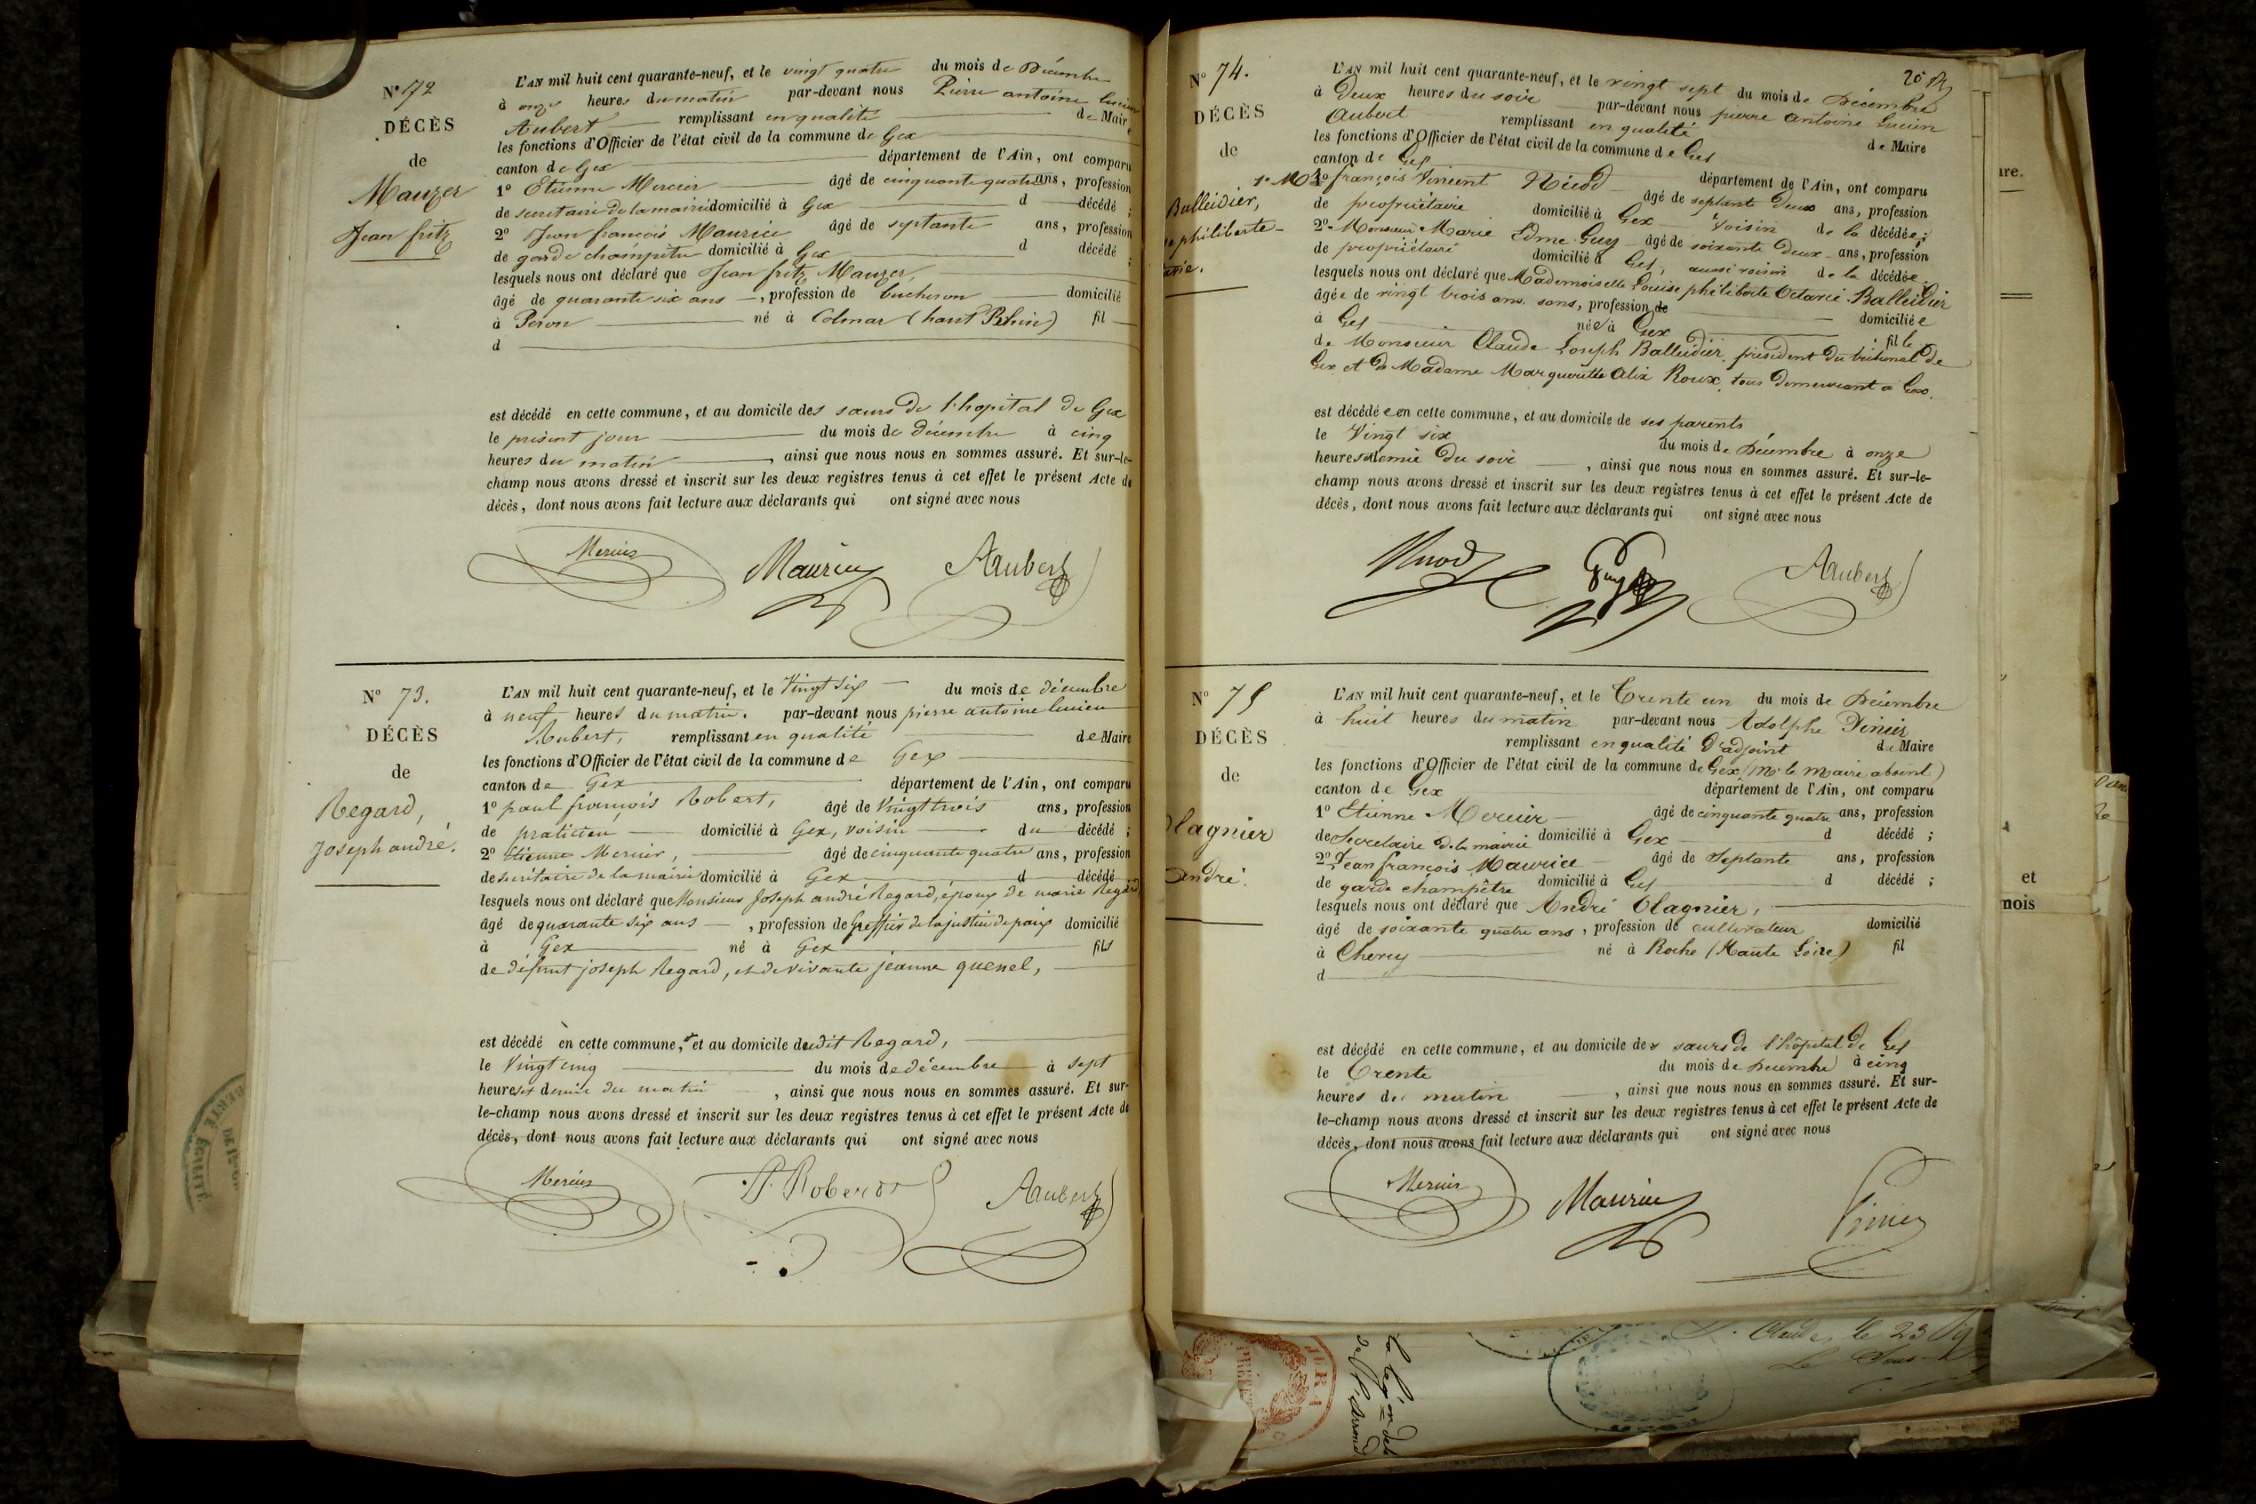 N° 72
DÉCÈS
de
Mauzer
Jean fritz
L'AN mil huit cent quarante-neuf, et le vingt quatre du mois de Décembre
à onze heures du matin par-devant nous Pierre antoine lucien
Aubert remplissant en qualité de Maire
les fonctions d'Officier de l'état civil de la commune de Gex
canton de Gex département de l'Ain, ont comparu
1° Etienne Mercier âgé de cinquante quatre ans, profession
de secretaire de la mairie domicilié à Gex d décédé ;
2° Jean francois Maurice âgé de septante ans, profession
de garde champêtre domicilié à Gex d décédé ;
lesquels nous ont déclaré que Jean fritz Mauzer,
âgé de quarante six ans , profession de bucheron domicilié
à Peron né à Colmar (haut Rhin) fil
d
est décédé en cette commune, et au domicile des sœurs de l'hopital de Gex
le présent jour du mois de décembre à cinq
heures du matin , ainsi que nous nous en sommes assuré. Et sur-le-
champ nous avons dressé et inscrit sur les deux registres tenus à cet effet le présent Acte de
décès, dont nous avons fait lecture aux déclarants qui ont signé avec nous
Mercier Maurice Aubert
N° 73.
DÉCÈS
de
Regard,
Joseph andré.
L'AN mil huit cent quarante-neuf, et le Vingt six du mois de décembre
à neuf heures du matin. par-devant nous pierre antoine lucien
Aubert, remplissant en qualité de Maire
les fonctions d'Officier de l'état civil de la commune de Gex
canton de Gex département de l'Ain, ont comparu
1° paul françois Robert, âgé de Vingt trois ans, profession
de praticien domicilié à Gex, voisin du décédé ;
2° Etienne Mercier, âgé de cinquante quatre ans, profession
de secrétaire de la mairie domicilié à Gex d décédé
lesquels nous ont déclaré que Monsieur Joseph andré Regard, époux de marie Regard
âgé de quarante six ans , profession de Greffier de la justice de paix domicilié
à Gex né à Gex fils
de défunt joseph Regard, et de vivante jeanne quenel,
est décédé en cette commune, et au domicile dudit Regard,
le Vingt cinq du mois de décembre à sept
heures et demie du matin , ainsi que nous nous en sommes assuré. Et sur-
le-champ nous avons dressé et inscrit sur les deux registres tenus à cet effet le présent Acte de
décès, dont nous avons fait lecture aux déclarants qui ont signé avec nous
Mercier P. Robert Aubert
N° 74.
DÉCÈS
de
Balleidier,
philiberte
L'AN mil huit cent quarante-neuf, et le vingt sept du mois de Décembre
à Deux heures du soir par-devant nous pierre antoine Lucien
Aubert remplissant en qualité de Maire
les fonctions d'Officier de l'état civil de la commune de Gex
canton de Gex département de l'Ain, ont comparu
1° M françois Vincent Nicod âgé de septante Deux ans, profession
de propriétaire domicilié à Gex voisin de la décédée ;
2° Monsieur Marie Edme Guy âgé de soixante Deux ans, profession
de propriétaire domicilié à Gex, aussi voisin de la décédée
lesquels nous ont déclaré que Mademoiselle Louise philiberte Octavie Balleidier
âgée de vingt trois ans sans, profession de domiciliée
à Gex née à Gex fille
de Monsieur Claude Joseph Balleidier, président du tribunal de
Gex et de Madame Marguerite Alix Roux, tous demeurant à Gex.
est décédée en cette commune, et au domicile de ses parents
le Vingt six du mois de Décembre à onze
heures demie du soir , ainsi que nous nous en sommes assuré. Et sur-le-
champ nous avons dressé et inscrit sur les deux registres tenus à cet effet le présent Acte de
décès, dont nous avons fait lecture aux déclarants qui ont signé avec nous
Nicod Guy Aubert
N° 75
DÉCÈS
de
Olagnier
André.
L'AN mil huit cent quarante-neuf, et le Trente un du mois de Décembre
à huit heures du matin par-devant nous Adolphe Vinier
remplissant en qualité d'adjoint de Maire
les fonctions d'Officier de l'état civil de la commune de Gex (Mr le Maire absent)
canton de Gex département de l'Ain, ont comparu
1° Etienne Mercier âgé de cinquante quatre ans, profession
de Secretaire de la mairie domicilié à Gex d décédé ;
2° Jean françois Maurice âgé de Septante ans, profession
de garde champêtre domicilié à Gex d décédé ;
lesquels nous ont déclaré que André Olagnier,
âgé de soixante quatre ans, profession de cultivateur domicilié
à Chevry né à Roche (Haute Loire) fil
d
est décédé en cette commune, et au domicile des sœurs de l'hôpital de Gex
le Trente du mois de Décembre à cinq
heures du matin , ainsi que nous nous en sommes assuré. Et sur-
le-champ nous avons dressé et inscrit sur les deux registres tenus à cet effet le présent Acte de
décès, dont nous avons fait lecture aux déclarants qui ont signé avec nous
Mercier Maurice Vinier
et
mois